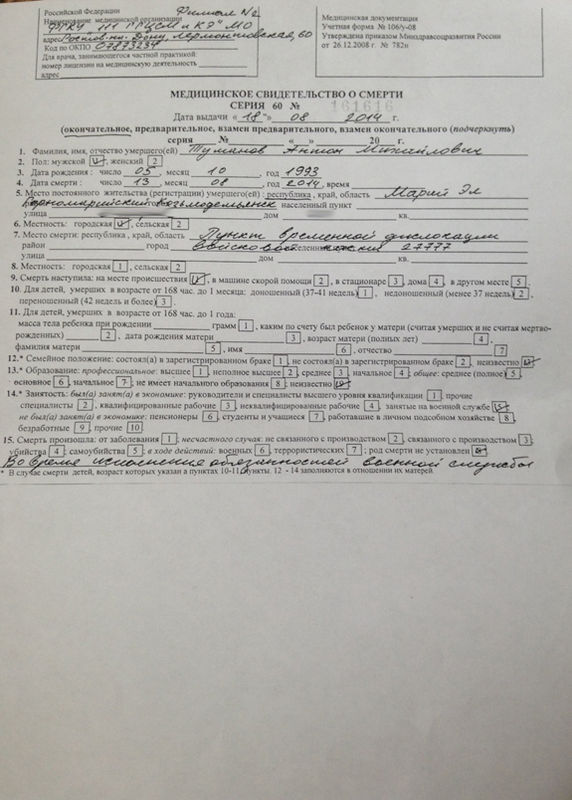 Российской Федерации Филиал №2
Наименование медицинской организации
ФГКУ 111 ГГЦСМ и КЭ МО
адрес Ростов на Дону, Лермонтовская, 60
Код по ОКПО 07873237
Для врача, занимающегося частной практикой:
номер лицензии на медицинскую деятельность
адрес
Медицинская документация
Учетная форма № 106/у-08
Утверждена приказом Минздравсоцразвития России
от 26.12.2008 г. № 782н
МЕДИЦИНСКОЕ СВИДЕТЕЛЬСТВО О СМЕРТИ
СЕРИЯ 60 № 161616
Дата выдачи « 18 » 08 2014 г.
(окончательное, предварительное, взамен предварительного, взамен окончательного (подчеркнуть)
серия № « » 20 г.
1. Фамилия, имя, отчество умершего(ей) Туманов Антон Михайлович
2. Пол: мужской 1, женский 2
3. Дата рождения: число 05, месяц 10, год 1993
4. Дата смерти: число 13, месяц 08, год 2014, время
5. Место постоянного жительства (регистрации) умершего(ей): республика, край, область Марий Эл
Горномарийский Козьмодемьянск населенный пункт
улица дом кв.
6. Местность: городская 1, сельская 2
7. Место смерти: республика, край, область Пункт временной дислокации
район город войсковой 27777
улица дом кв.
8. Местность: городская 1, сельская 2
9. Смерть наступила: на месте происшествия 1, в машине скорой помощи 2, в стационаре 3, дома 4, в другом месте 5.
10. Для детей, умерших в возрасте от 168 час. до 1 месяца: доношенный (37-41 недель) 1, недоношенный (менее 37 недель) 2,
переношенный (42 недель и более) 3.
11. Для детей, умерших в возрасте от 168 час. до 1 года:
масса тела ребенка при рождении грамм 1, каким по счету был ребенок у матери (считая умерших и не считая мертво-
рожденных) 2, дата рождения матери 3, возраст матери (полных лет) 4,
фамилия матери 5, имя 6, отчество 7
12.* Семейное положение: состоял(а) в зарегистрированном браке 1, не состоял(а) в зарегистрированном браке 2, неизвестно 3
13.* Образование: профессиональное: высшее 1, неполное высшее 2, среднее 3, начальное 4; общее: среднее (полное) 5,
основное 6, начальное 7; не имеет начального образования 8; неизвестно 9
14.* Занятость: был(а) занят(а) в экономике: руководители и специалисты высшего уровня квалификации 1, прочие
специалисты 2, квалифицированные рабочие 3, неквалифицированные рабочие 4, занятые на военной службе 5;
не был(а) занят(а) в экономике: пенсионеры 6, студенты и учащиеся 7, работавшие в личном подсобном хозяйстве 8,
безработные 9, прочие 10.
15. Смерть произошла: от заболевания 1; несчастного случая: не связанного с производством 2, связанного с производством 3;
убийства 4; самоубийства 5; в ходе действий: военных 6, террористических 7; род смерти не установлен 8
Во время исполнения обязанностей военной службы
* В случае смерти детей, возраст которых указан в пунктах 10-11, пункты 12 - 14 заполняются в отношении их матерей